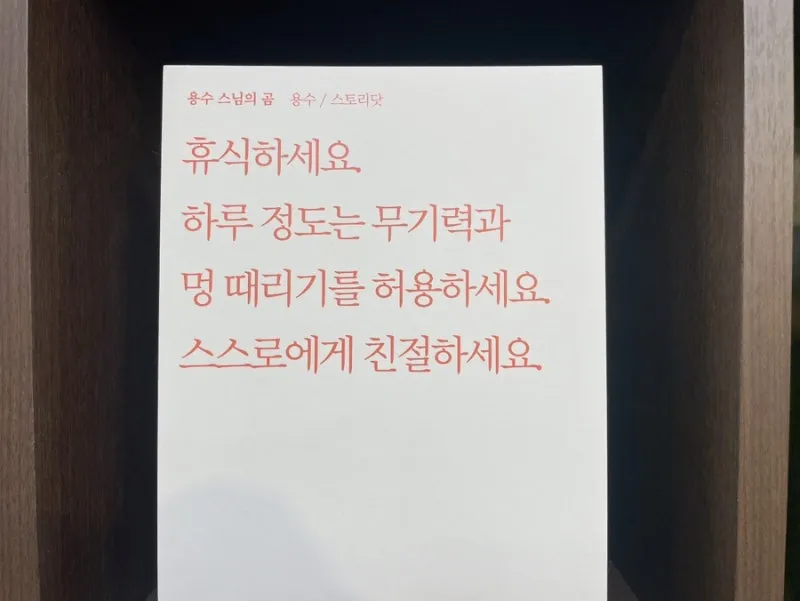 용수 스님의 곰 용수 / 스토리닷
휴식하세요.
하루 정도는 무기력과
멍 때리기를 허용하세요.
스스로에게 친절하세요.